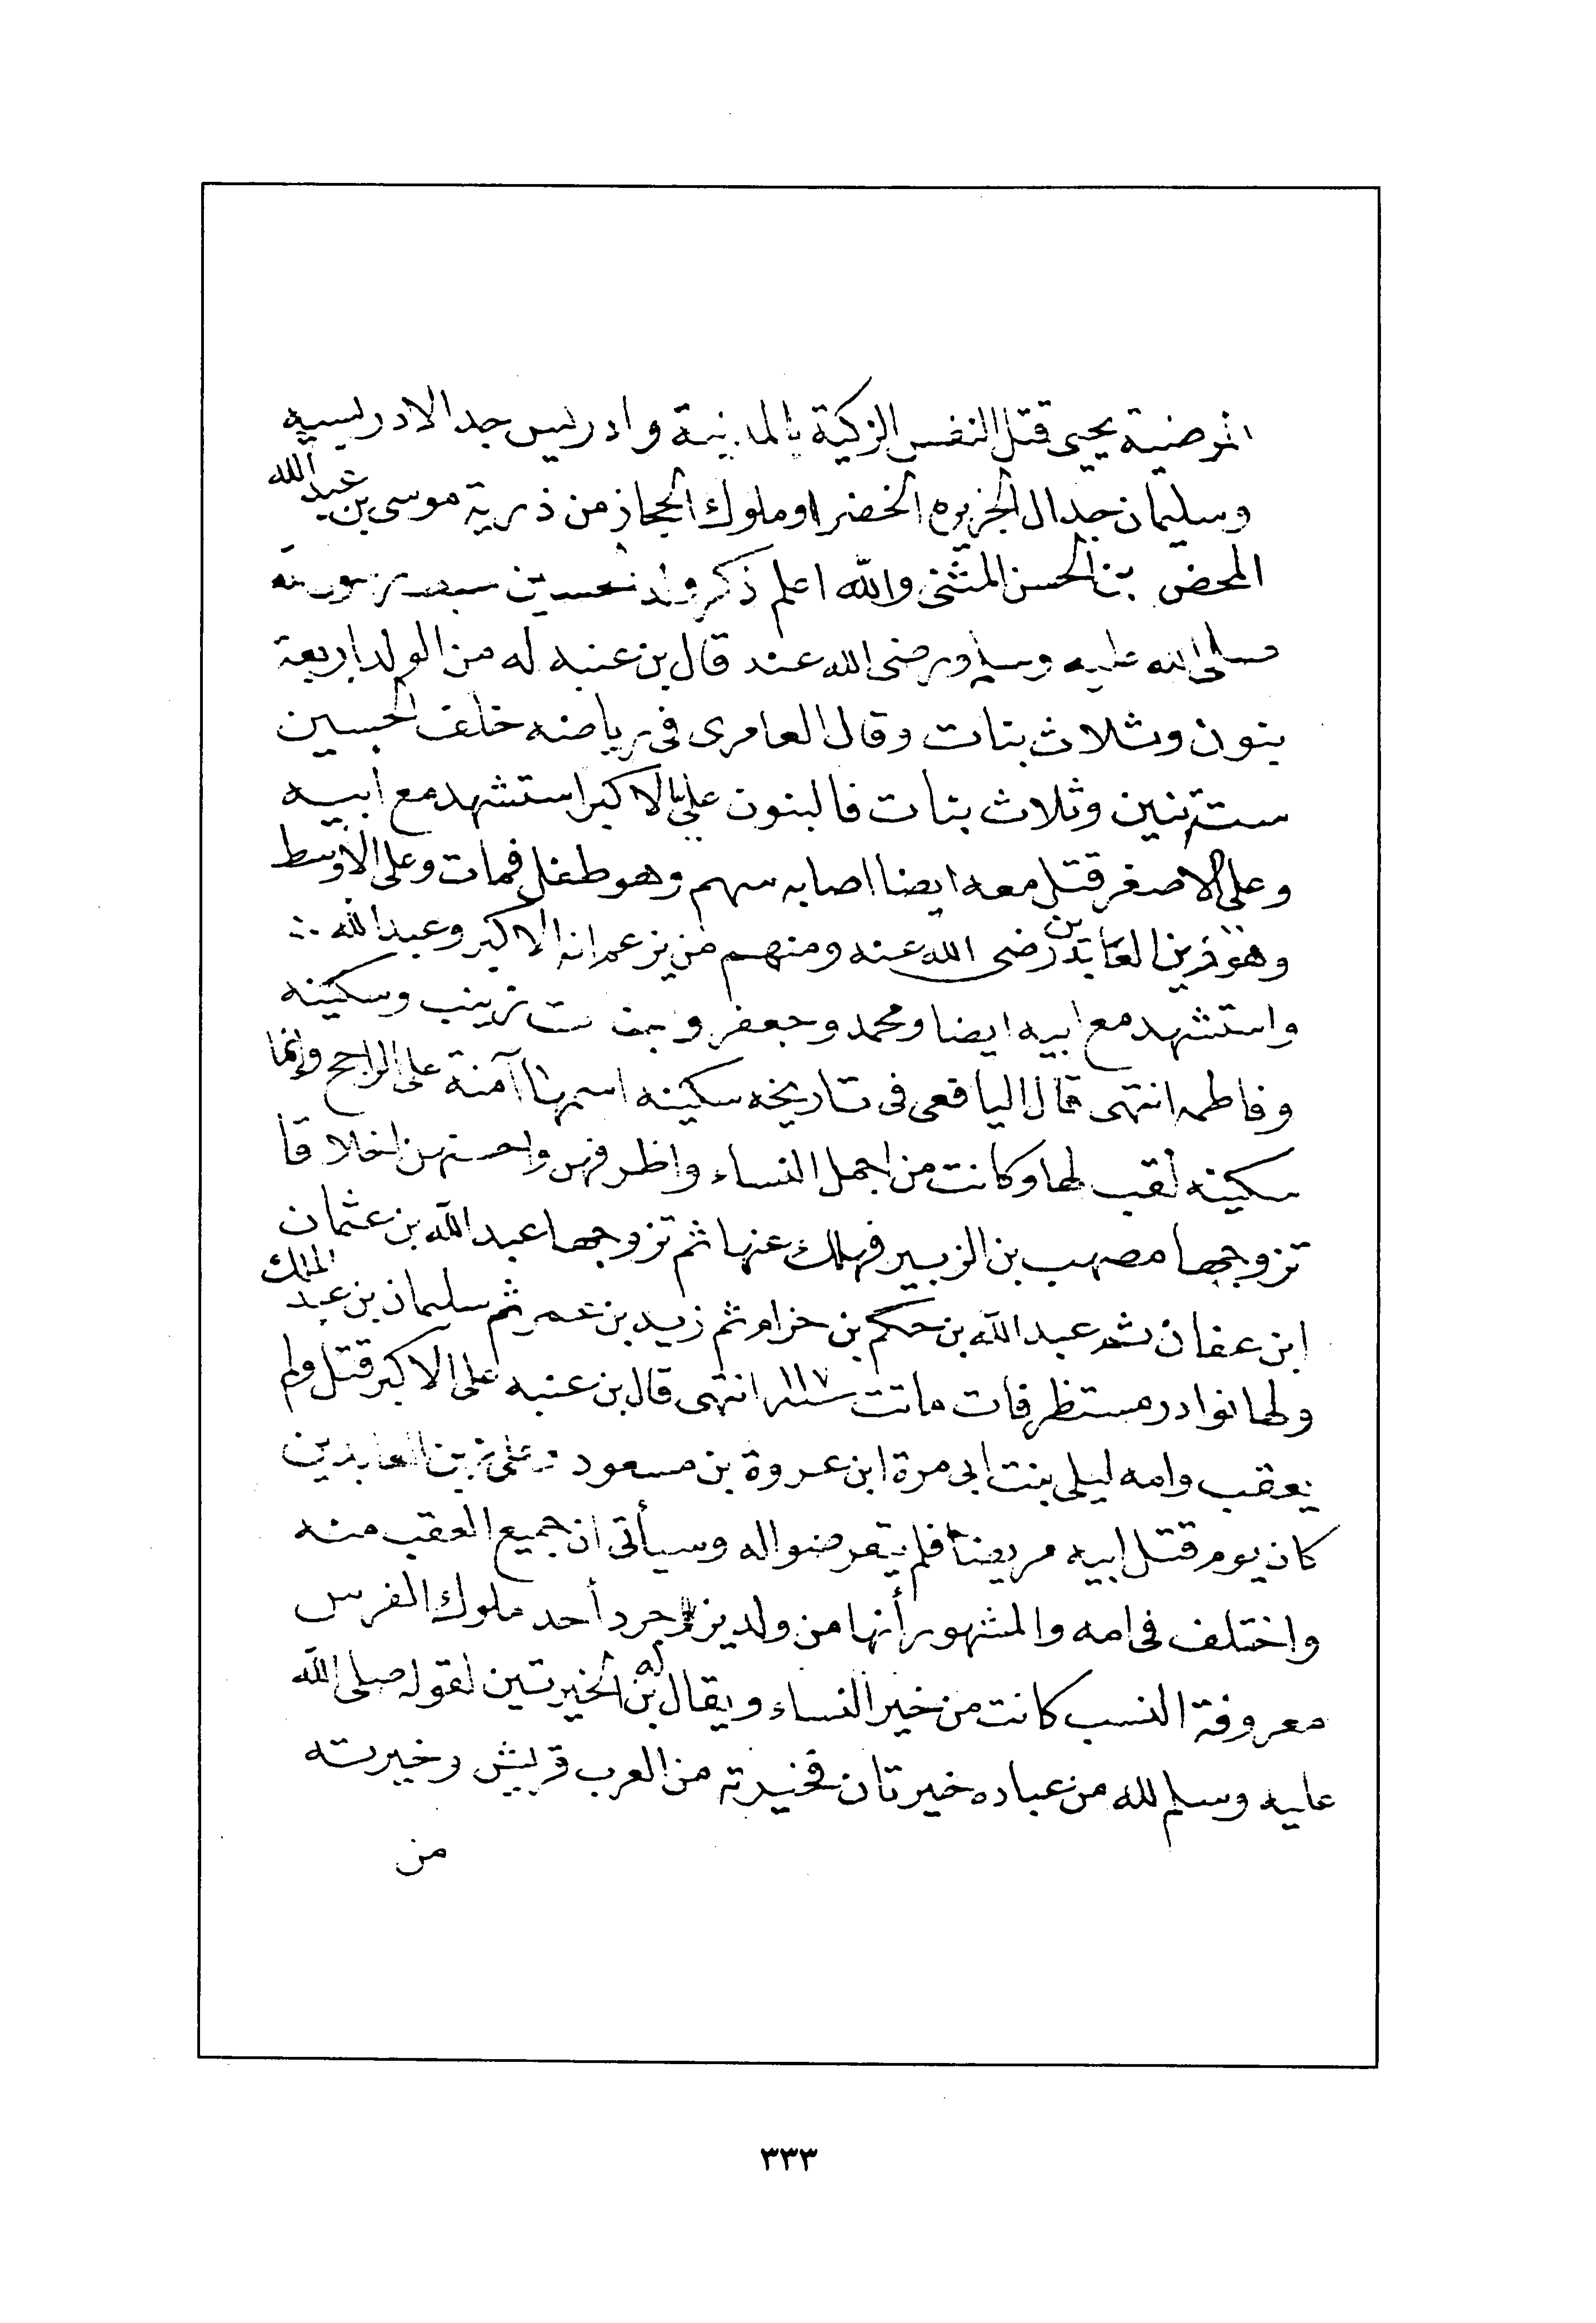 المرضية يحيى قتل النفس الزكية بالمدينة وادريس جد الادريسيه
وسليمان جد ال الجزيره الخضرا وملوك الحجاز من ذرية موسى بن عبد الله
المحض بن الحسن المثنى والله اعلم ذكر ولد
صلى الله عليه وسلم ورضى الله عنه قال بن عنبه له من الولد اربعة
بنون وثلاث بنات وقال العامرى فى رياضه خلف الحسين
ستة بنين وثلاث بنات فالبنون على الاكبر استشهد مع ابيه
وعلى الاصغر قتل معه ايضا اصابه سهم وهو طفل فمات وعلى الاوسط
وهو زين العابدين رضى الله عنه ومنهم من يزعم انه الاكبر وعبد الله
واستشهد مع ابيه ايضا ومحمد وجعفر و زينب وسكينه
وفاطمه انتهى قال اليافعى فى تاريخه سكينه اسمها آمنة على الراجح وانما
سكينه لقب لها وكانت من اجمل النساء واظرفهن واحسنهن اخلاقا
تزوجها مصعب بن الزبير فهلك عنها ثم تزوجها عبد الله بن عثمان
ابن عفان ثم عبد الله بن حكم بن حزام ثم زيد بن عمر ثم سليمان بن عبد الملك
ولها نوادر مستظرفات ماتت سنة ١١٧ انتهى قال بن عنبه على الاكبر قتل ولم
يعقب وامه ليلى بنت ابى مرة ابن عروة بن مسعود على زين العابدين
كان يوم قتل ابيه مريضا فلم يتعرضوا له وسيأتى ان جميع العقب منه
واختلف فى امه والمشهور أنها من ولد يزدجرد أحد ملوك الفرس
معروفة النسب كانت من خير النساء ويقال له بن الخيرتين لقوله صلى الله
عليه وسلم لله من عباده خيرتان فخيرته من العرب قريش وخيرته
من
٣٣٣